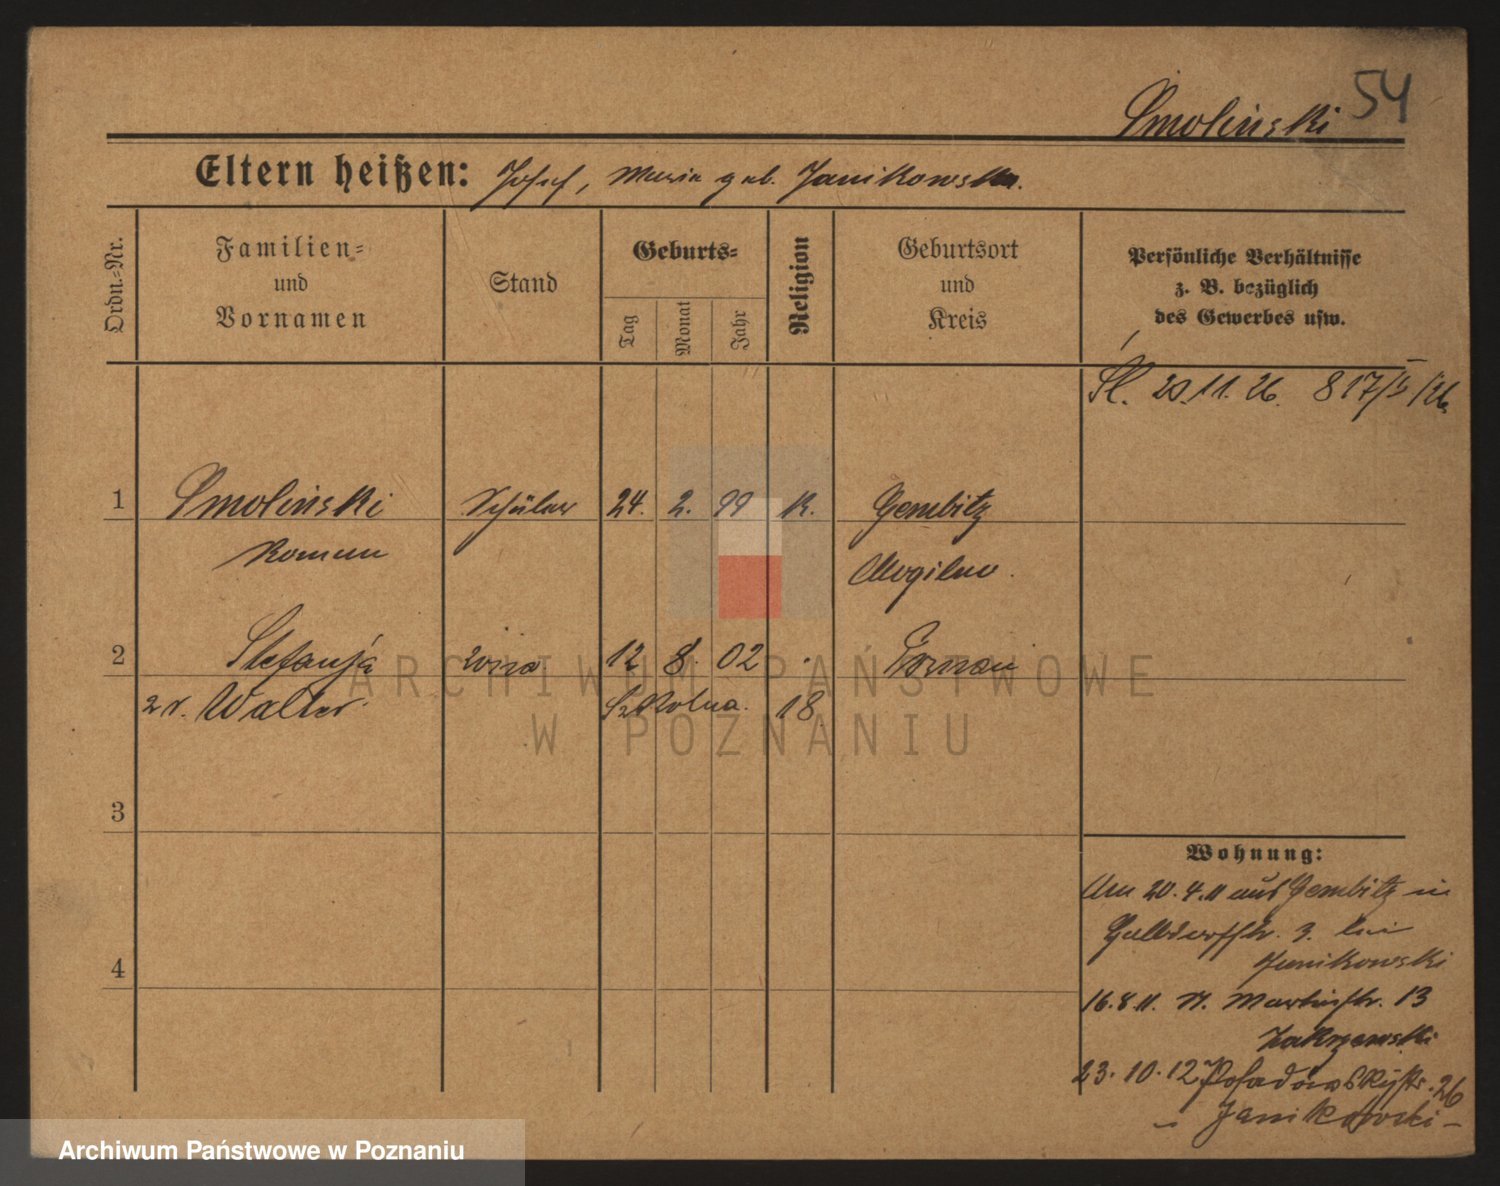 Smoliński 54
Eltern heißen: Josef, Maria geb. Janikowska.
Ordn.-Nr.
Familien-
und
Vornamen
Stand
Geburts-
Tag
Monat
Jahr
Religion
Geburtsort
und
Kreis
Persönliche Verhältnisse
z. B. bezüglich
des Gewerbes usw.
Śl. 20.11.26. 817/ /26
1 Smoliński Schüler 24. 2. 99 K. Gembitz
Roman Mogilno.
2 Stefanja 12 8. 02 Poznań
z d. Walter. Szkolna. 18
3
4
Wohnung:
Am 20.4.11 aus Gembitz in
3. bei
Janikowski
16.8.11. St. Martinstr. 13
Zakrzewski
23.10.12 Posadowskystr. 26
Janikowski
ARCHIWUM PAŃSTWOWE
W POZNANIU
Archiwum Państwowe w Poznaniu